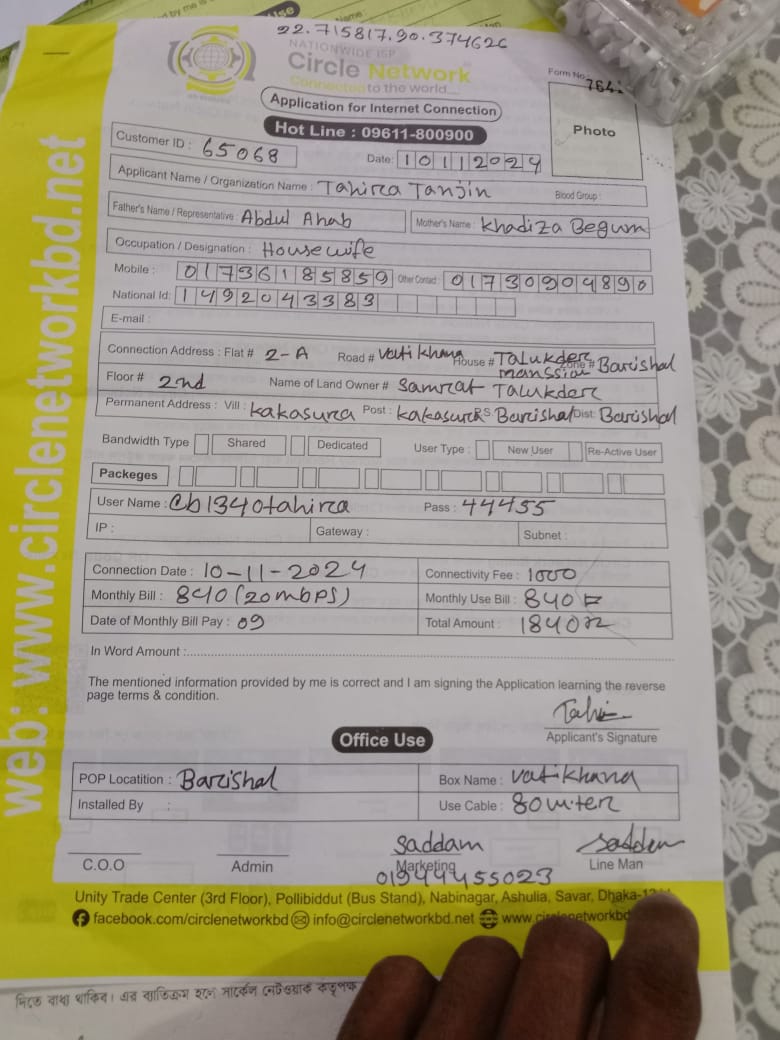 22.715817.90.374626
NATIONWIDE ISP
Circle Network
Connected to the world....
Form No. 764
Application for Internet Connection
Hot Line : 09611-800900
Photo
Customer ID : 65068
Date: 10112024
Applicant Name / Organization Name : Tahira Tanjin Blood Group :
Father's Name / Representative : Abdul Ahab Mother's Name : Khadiza Begum
Occupation / Designation : Housewife
Mobile : 01736185859 Other Contact : 01730904890
National Id: 1492043383
E-mail :
Connection Address : Flat # 2-A Road # Vatikhana House # Talukder manssion Zone # Barishal
Floor # 2nd Name of Land Owner # Samrat Talukder
Permanent Address : Vill : Kakasura Post : Kakasura P.S. Barishal Dist: Barishal
Bandwidth Type Shared Dedicated User Type : New User Re-Active User
Packeges
User Name : @b1340tahira Pass : 44455
IP : Gateway : Subnet :
Connection Date : 10-11-2024 Connectivity Fee : 1000
Monthly Bill : 840 (20mbps) Monthly Use Bill : 840
Date of Monthly Bill Pay : 09 Total Amount : 1840
In Word Amount :
The mentioned information provided by me is correct and I am signing the Application learning the reverse
page terms & condition.
Applicant's Signature
Office Use
POP Locatition : Barishal Box Name : Vatikhana
Installed By : Use Cable : 80 miter
Saddam Saddam
C.O.O Admin Marketing Line Man
01944455023
Unity Trade Center (3rd Floor), Pollibiddut (Bus Stand), Nabinagar, Ashulia, Savar, Dhaka-
facebook.com/circlenetworkbd info@circlenetworkbd.net
web: www.circlenetworkbd.net
দিতে বাধ্য থাকিব। এর ব্যতিক্রম হলে সার্কেল নেটওয়ার্ক কতৃপক্ষ